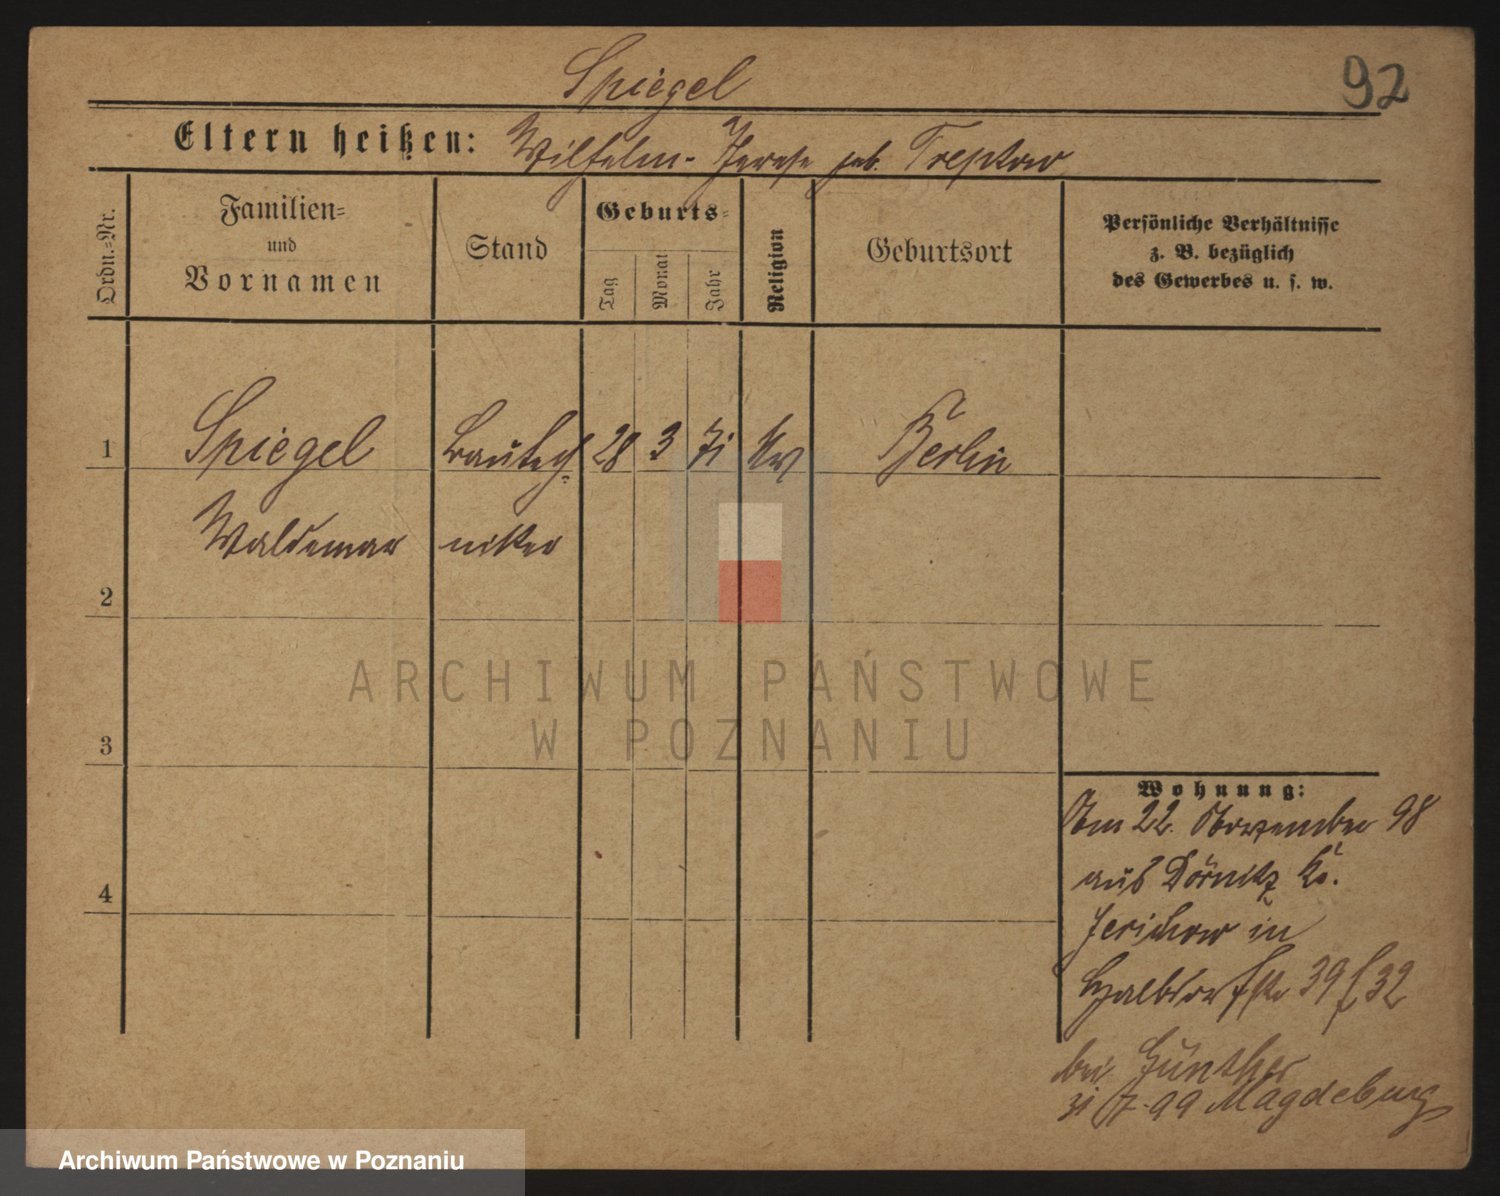 Spiegel
92
Eltern heißen: Wilhelm - Therese geb. Treptow
Ordn.-Nr.
Familien-
und
Vornamen
Stand
Geburts-
Tag
Monat
Jahr
Religion
Geburtsort
Persönliche Verhältnisse
z. B. bezüglich
des Gewerbes u. s. w.
1 Spiegel Bautech- 28 3 71 Berlin
Waldemar niker
2
3
4
Wohnung:
Am 22. November 98
aus Dörnitz Kr.
Jerichow in
Halbdorfstr 39
bei Günther
31/7.99 Magdeburg
ARCHIWUM PAŃSTWOWE
W POZNANIU
Archiwum Państwowe w Poznaniu